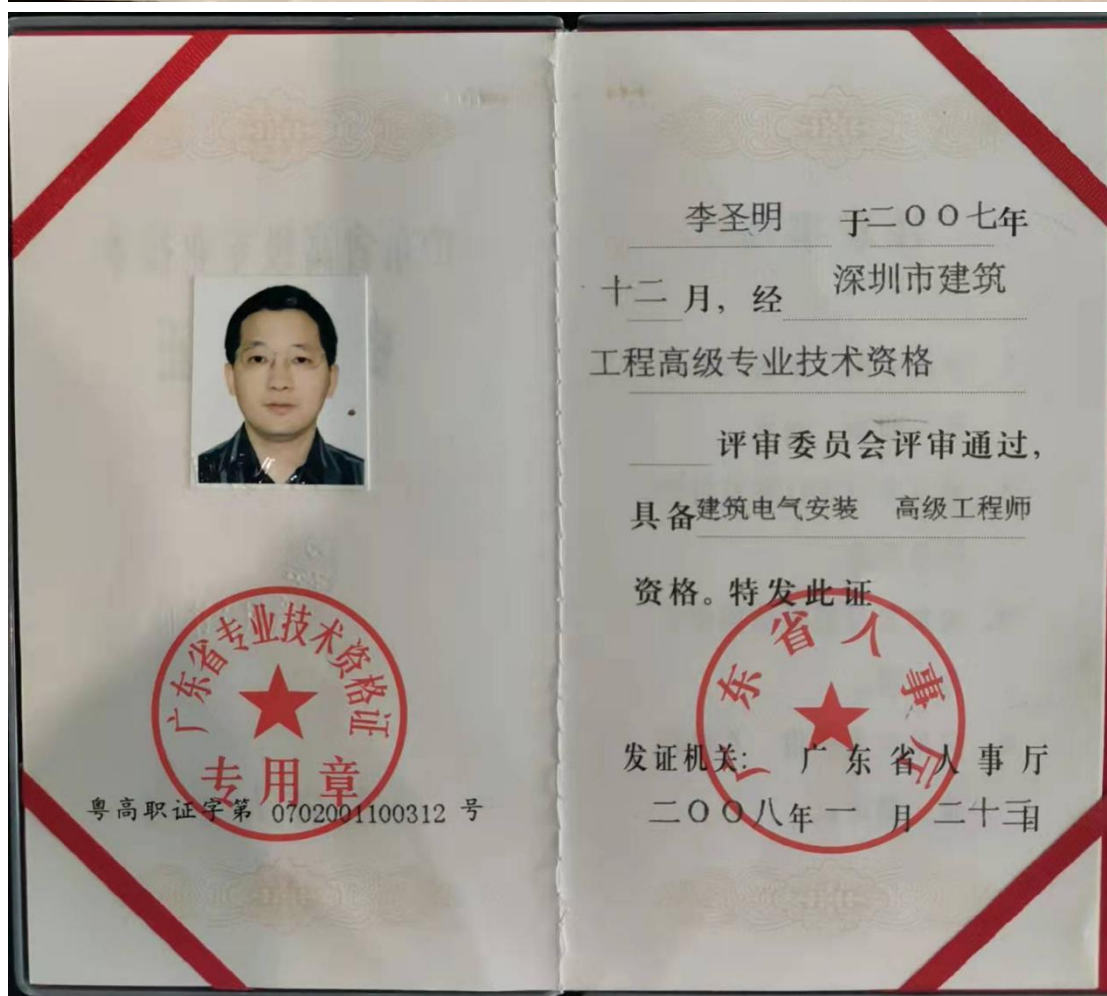 广东省专业技术资格证
专用章
粤高职证字第 0702001100312 号
李圣明 于二〇〇七年
十二月，经 深圳市建筑
工程高级专业技术资格
评审委员会评审通过，
具备建筑电气安装 高级工程师
资格。特发此证
广东省人事厅
发证机关： 广东省人事厅
二〇〇八年一月二十三日